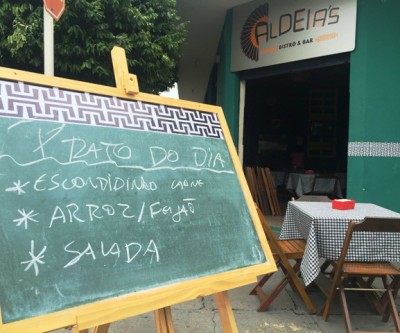 ALDEIA'S
BISTRÔ & BAR
PRATO DO DIA
* ESCONDIDINHO CARNE
* ARROZ/FEIJÃO
* SALADA